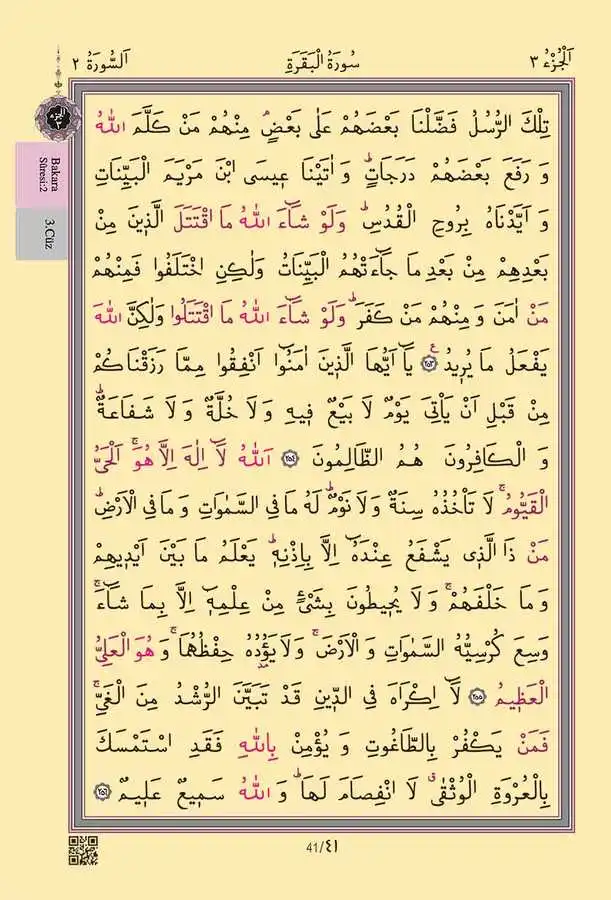 اَلْجُزْءُ ٣
سُورَةُ الْبَقَرَةِ
اَلسُّورَةُ ٢
تِلْكَ الرُّسُلُ فَضَّلْنَا بَعْضَهُمْ عَلٰى بَعْضٍۢ مِنْهُمْ مَنْ كَلَّمَ اللّٰهُ
وَ رَفَعَ بَعْضَهُمْ دَرَجَاتٍۜ وَ اٰتَيْنَا عٖيسَى ابْنَ مَرْيَمَ الْبَيِّنَاتِ
وَ اَيَّدْنَاهُ بِرُوحِ الْقُدُسِۜ وَلَوْ شَٓاءَ اللّٰهُ مَا اقْتَتَلَ الَّذٖينَ مِنْ
بَعْدِهِمْ مِنْ بَعْدِ مَا جَٓاءَتْهُمُ الْبَيِّنَاتُ وَلٰكِنِ اخْتَلَفُوا فَمِنْهُمْ
مَنْ اٰمَنَ وَ مِنْهُمْ مَنْ كَفَرَۜ وَلَوْ شَٓاءَ اللّٰهُ مَا اقْتَتَلُوا وَلٰكِنَّ اللّٰهَ
يَفْعَلُ مَا يُرٖيدُ ع ﴿٢٥٣﴾ يَٓا اَيُّهَا الَّذٖينَ اٰمَنُٓوا اَنْفِقُوا مِمَّا رَزَقْنَاكُمْ
مِنْ قَبْلِ اَنْ يَأْتِىَ يَوْمٌ لَا بَيْعٌ فٖيهِ وَ لَا خُلَّةٌ وَ لَا شَفَاعَةٌۜ
وَ الْكَافِرُونَ هُمُ الظَّالِمُونَ ﴿٢٥٤﴾ اَللّٰهُ لَٓا اِلٰهَ اِلَّا هُوَۚ اَلْحَىُّ
الْقَيُّومُۚ لَا تَأْخُذُهُ سِنَةٌ وَ لَا نَوْمٌۜ لَهُ مَا فِى السَّمٰوَاتِ وَ مَا فِى الْاَرْضِۜ
مَنْ ذَا الَّذٖى يَشْفَعُ عِنْدَهُٓ اِلَّا بِاِذْنِهٖۜ يَعْلَمُ مَا بَيْنَ اَيْدٖيهِمْ
وَ مَا خَلْفَهُمْۚ وَ لَا يُحٖيطُونَ بِشَىْءٍ مِنْ عِلْمِهٖٓ اِلَّا بِمَا شَٓاءَۚ
وَسِعَ كُرْسِيُّهُ السَّمٰوَاتِ وَ الْاَرْضَۚ وَ لَا يَؤُدُهُ حِفْظُهُمَاۚ وَ هُوَ الْعَلِىُّ
الْعَظٖيمُ ﴿٢٥٥﴾ لَٓا اِكْرَاهَ فِى الدّٖينِ قَدْ تَبَيَّنَ الرُّشْدُ مِنَ الْغَىِّۚ
فَمَنْ يَكْفُرْ بِالطَّاغُوتِ وَ يُؤْمِنْ بِاللّٰهِ فَقَدِ اسْتَمْسَكَ
بِالْعُرْوَةِ الْوُثْقٰىۗ لَا انْفِصَامَ لَهَاۜ وَ اللّٰهُ سَمٖيعٌ عَلٖيمٌ ﴿٢٥٦﴾
Bakara
Sûresi:2
3.Cüz
41/٤١